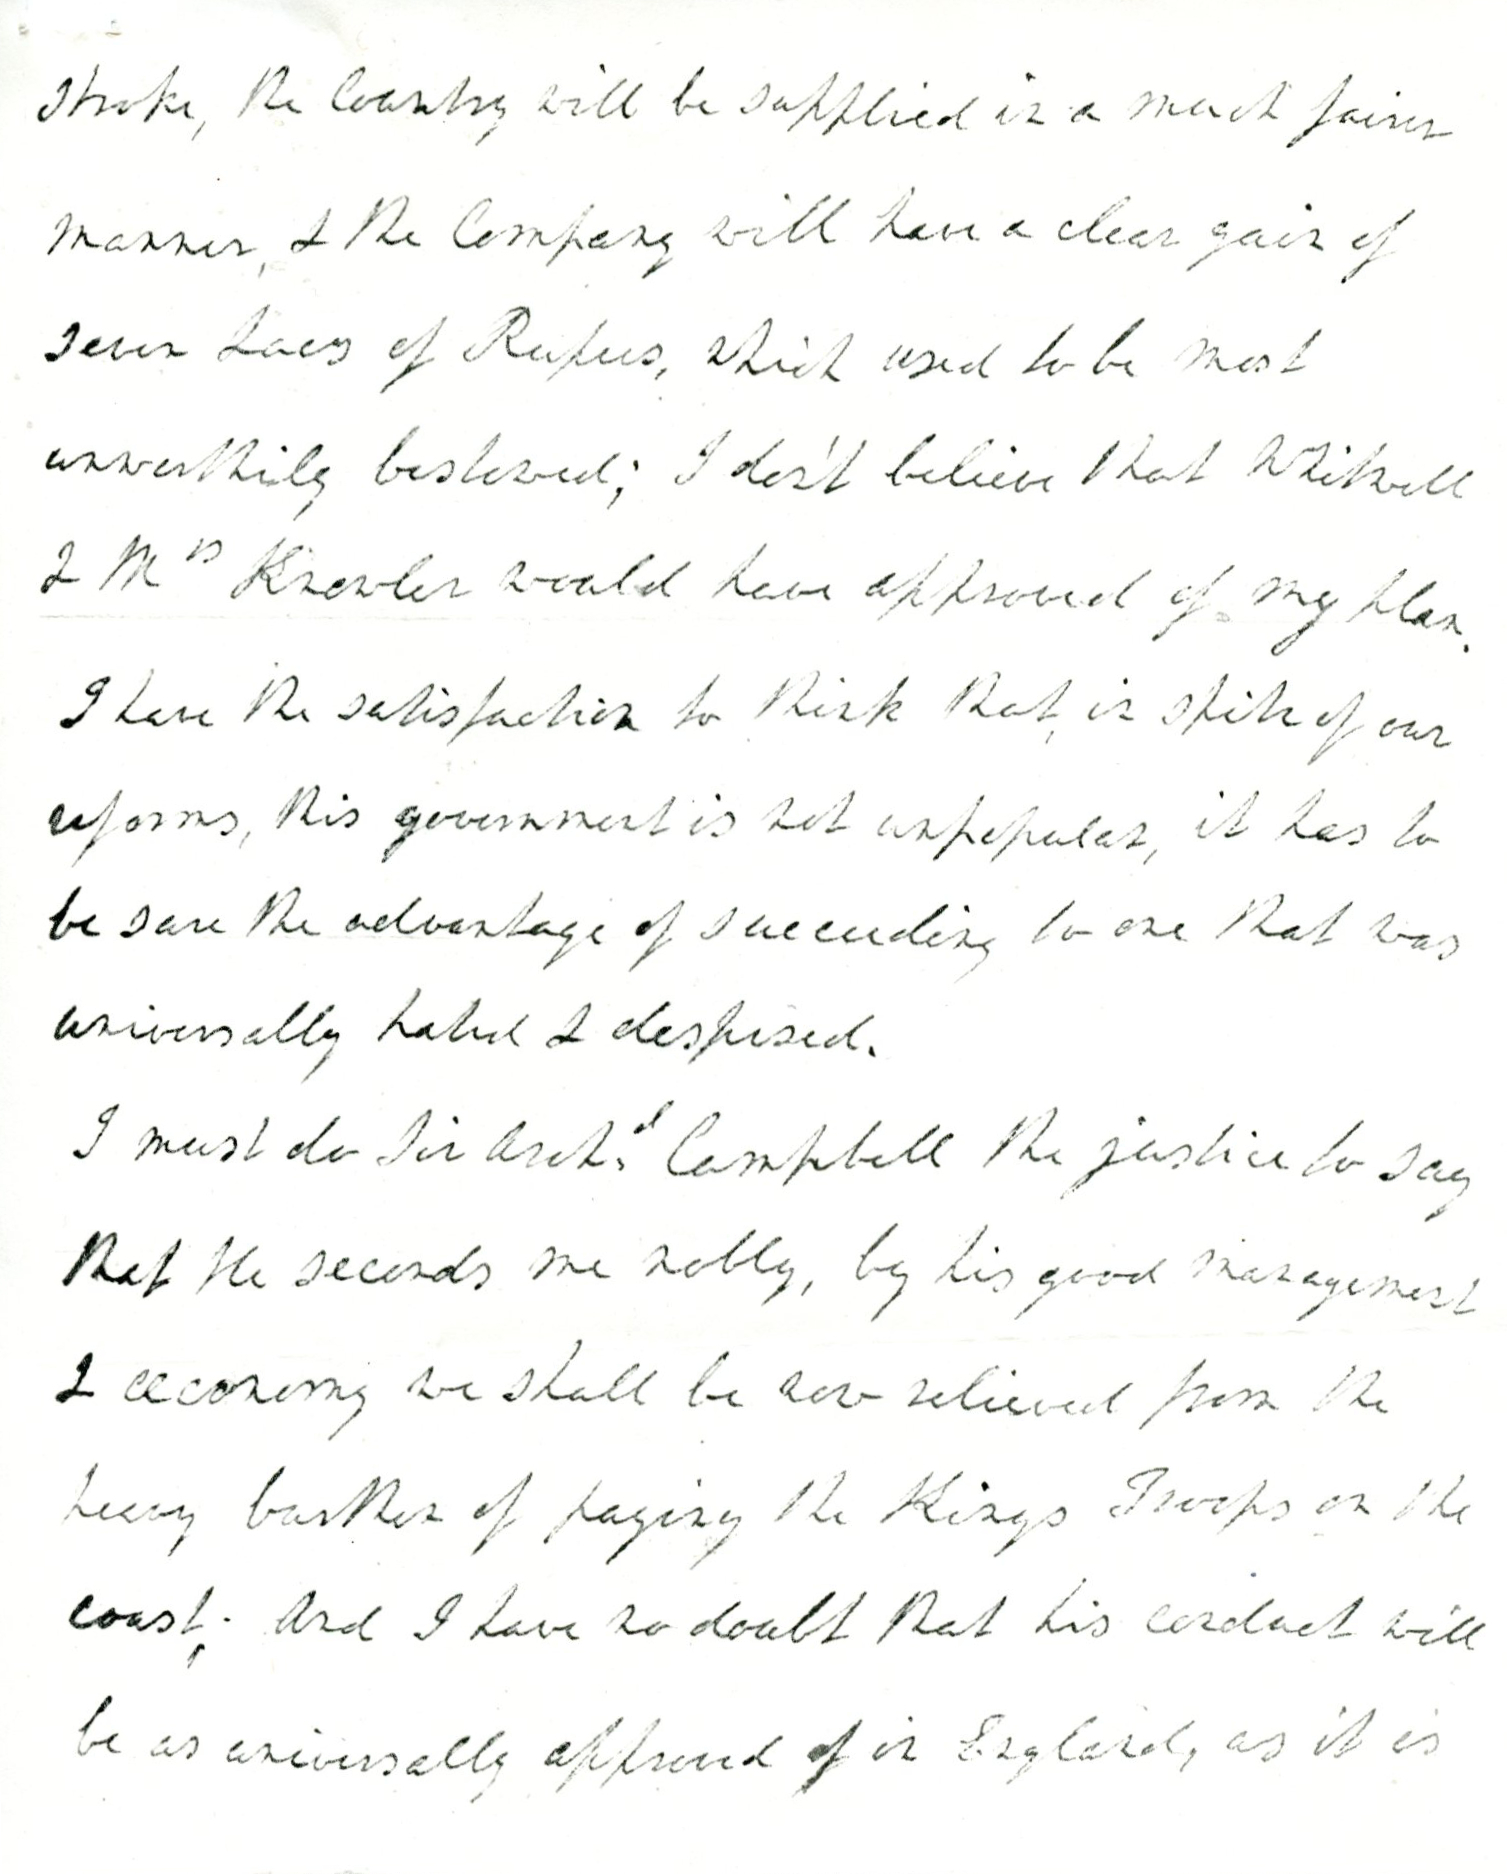 stroke, the Country will be supplied in a much fairer
manner, & the Company will have a clear gain of
seven Lacs of Rupees, which used to be most
unworthily bestowed; I don't believe that Whitwell
& Mrs Knowler would have approved of my plan.
I have the satisfaction to think that, in spite of our
reforms, this government is not unpopular, it has to
be sure the advantage of succeeding to one that was
universally hated & despised.
I must do Sir Arch.d Campbell the justice to say
that He seconds me nobly, by his good management
& œconomy we shall be now relieved from the
heavy burthen of paying the Kings Troops on the
coast; And I have no doubt that his conduct will
be as universally approved of in England, as it is